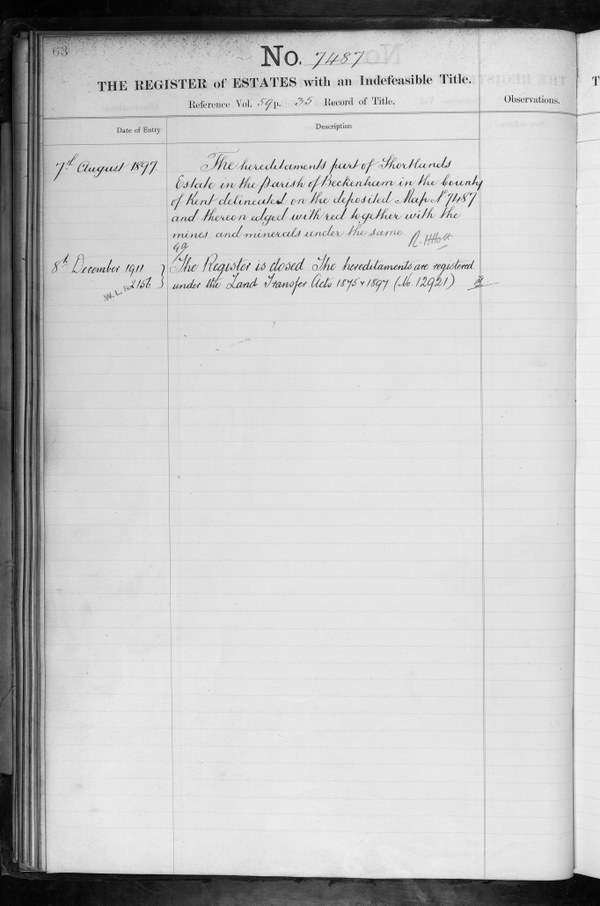 63
No. 7487
THE REGISTER of ESTATES with an Indefeasible Title.
Reference Vol. 59 p. 35 Record of Title.
Observations.
Date of Entry
Description
7th August 1897
The hereditaments part of Shortlands
Estate in the Parish of Beckenham in the County
of Kent delineated on the deposited Map No 7487
and thereon edged with red together with the
mines and minerals under the same
8th December 1911
The Register is closed The hereditaments are registered
2156
under the Land Transfer Acts 1875 & 1897 (No. 12921)